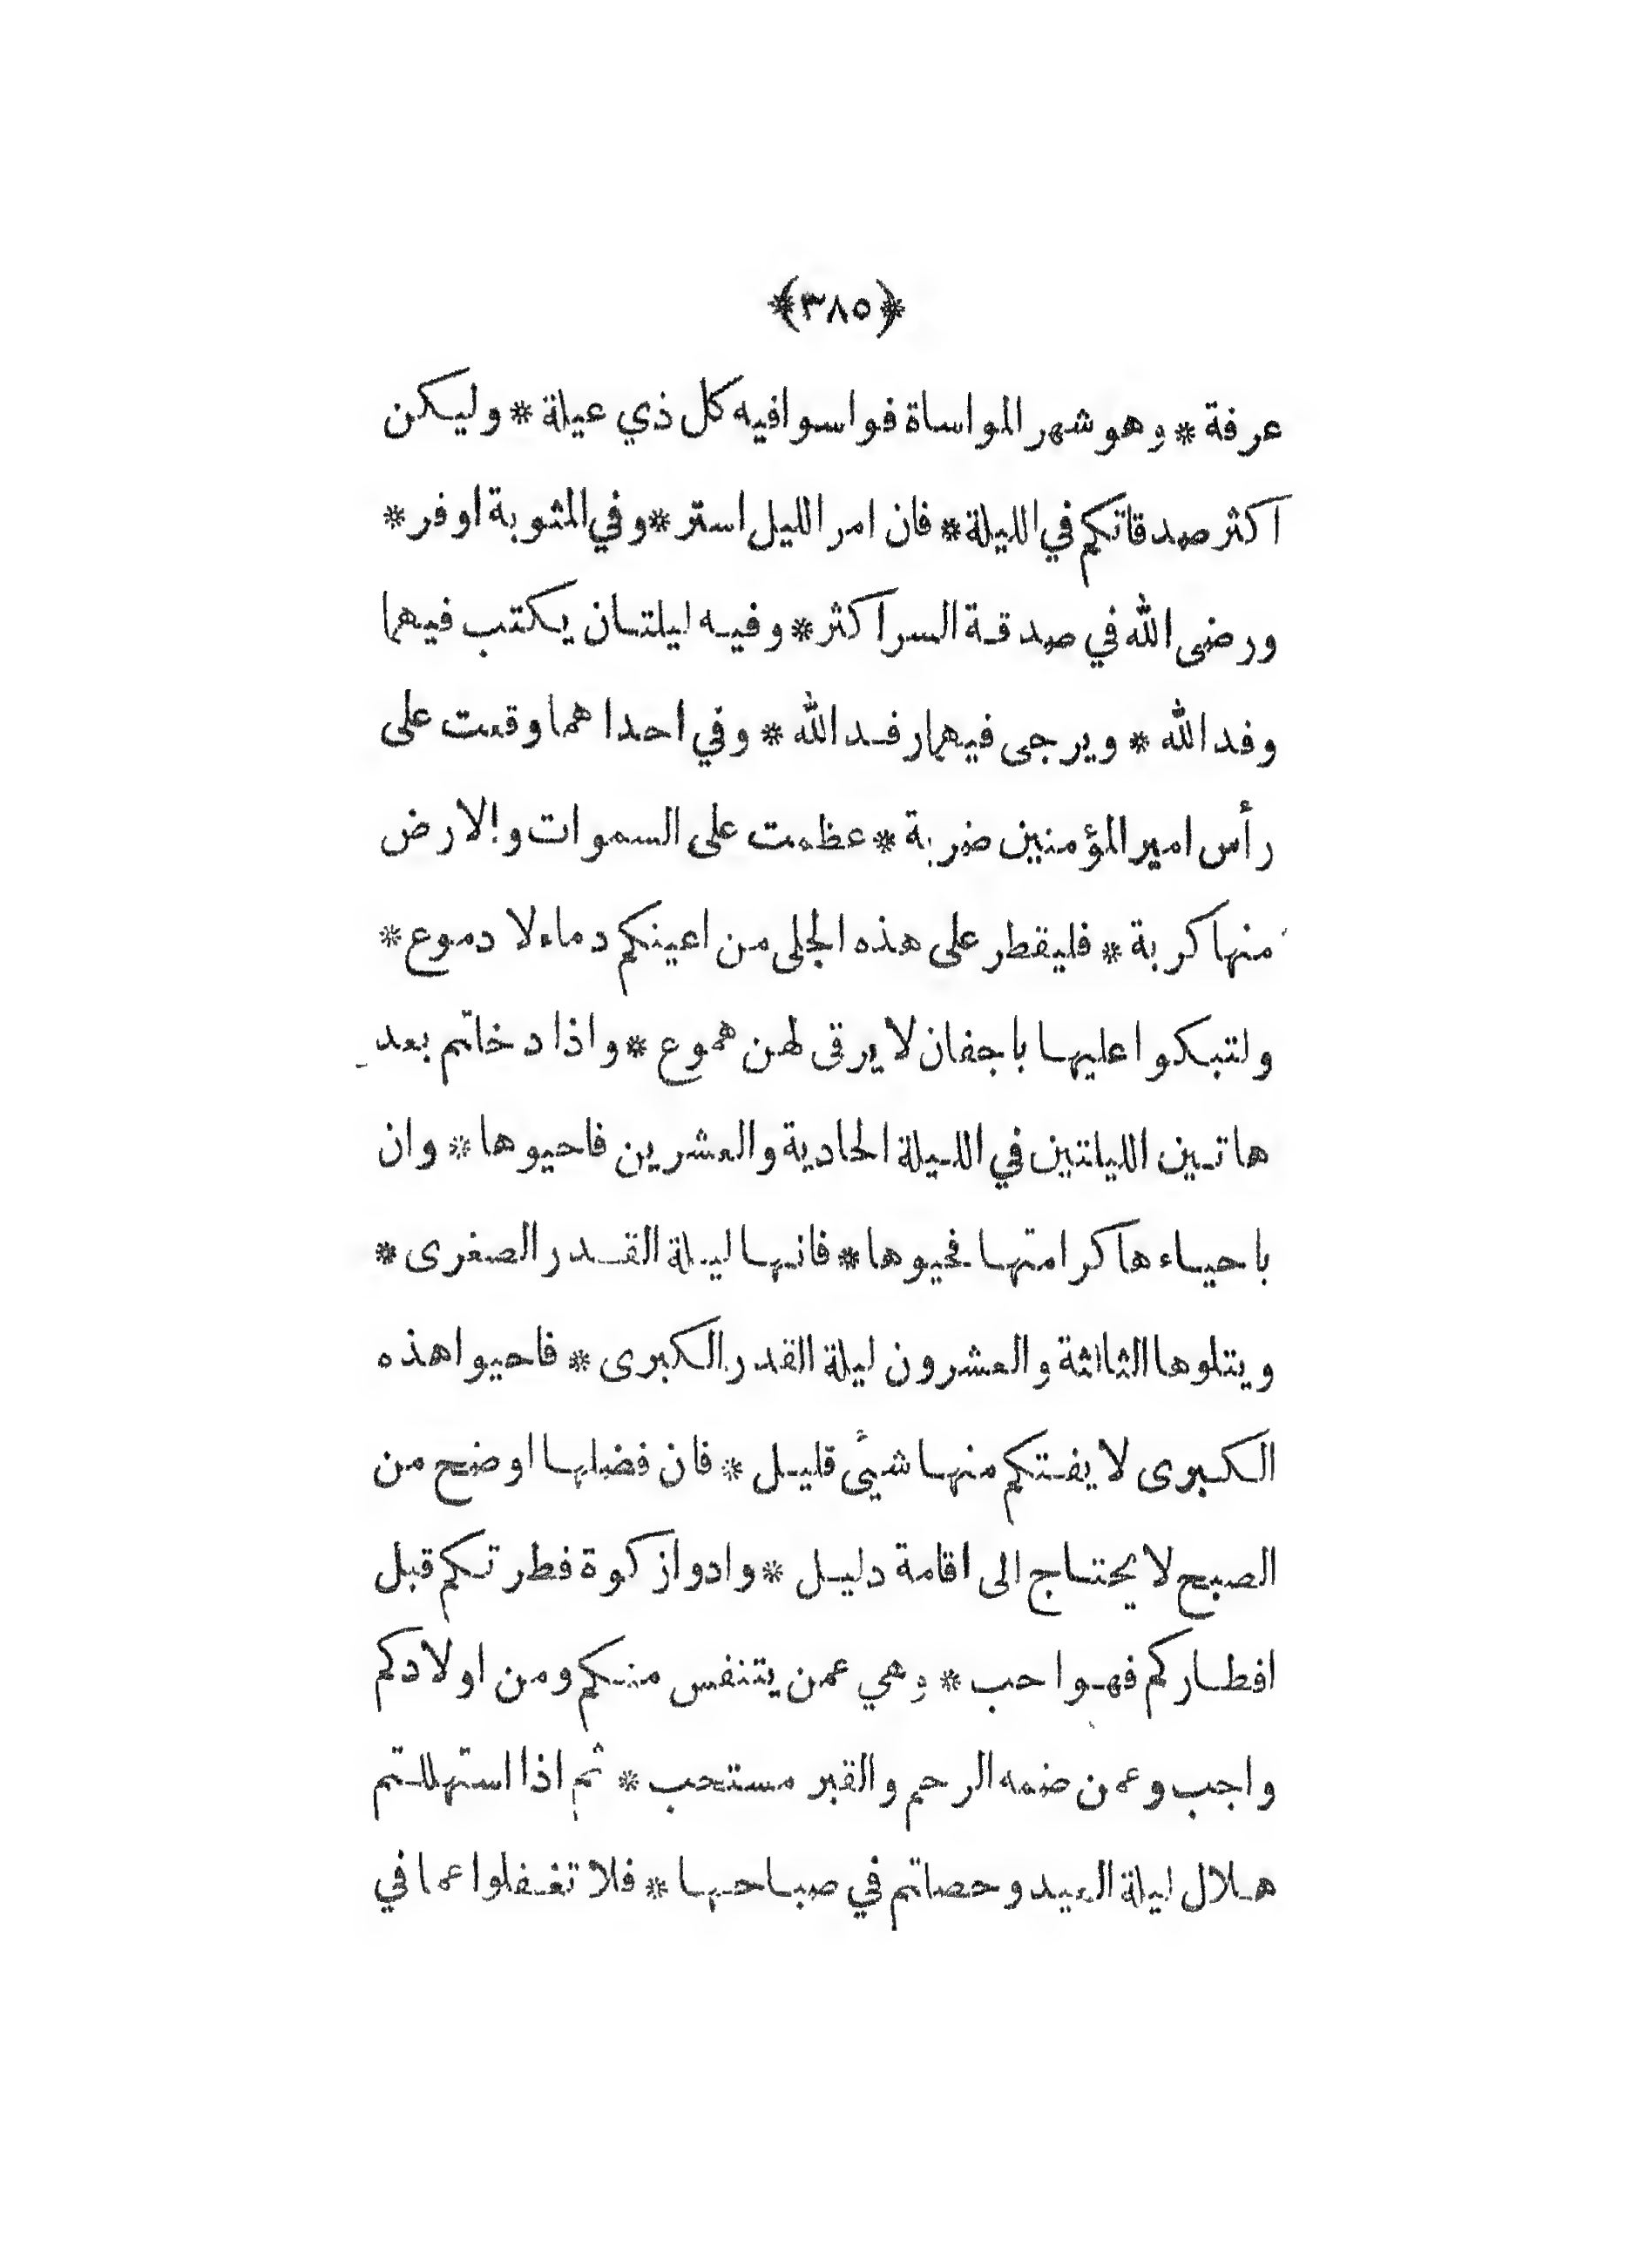 ﴿٣٨٥﴾
عرفة * وهو شهر المواساة فواسوا فيه كل ذي عيلة * وليكن
اكثر صدقاتكم في الليلة * فان امر الليل استر * وفي المثوبة اوفر *
ورضى الله في صدقة السر اكثر * وفيه ليلتان يكتب فيهما
وفد الله * ويرجى فيهما رفد الله * وفي احداهما وقعت على
رأس امير المؤمنين ضربة * عظمت على السموات والارض
منها كربة * فليقطر على هذه الجلى من اعينكم دماء لا دموع *
ولتبكوا عليها باجفان لا يرقى لهن هموع * واذا دخلتم بعد
هاتين الليلتين في الليلة الحادية والعشرين فاحيوها * وان
باحياءها كرامتها فحيوها * فانها ليلة القدر الصغرى *
ويتلوها الثالثة والعشرون ليلة القدر الكبرى * فاحيوا هذه
الكبرى لا يفتكم منها شيئ قليل * فان فضلها اوضح من
الصبح لا يحتاج الى اقامة دليل * وادوا زكوة فطرتكم قبل
افطاركم فهو احب * وهي عمن يتنفس منكم ومن اولادكم
واجب وعمن ضمه الرحم والقبر مستحب * ثم اذا استهللتم
هلال ليلة العيد وحصلتم في صباحها * فلا تغفلوا عما في